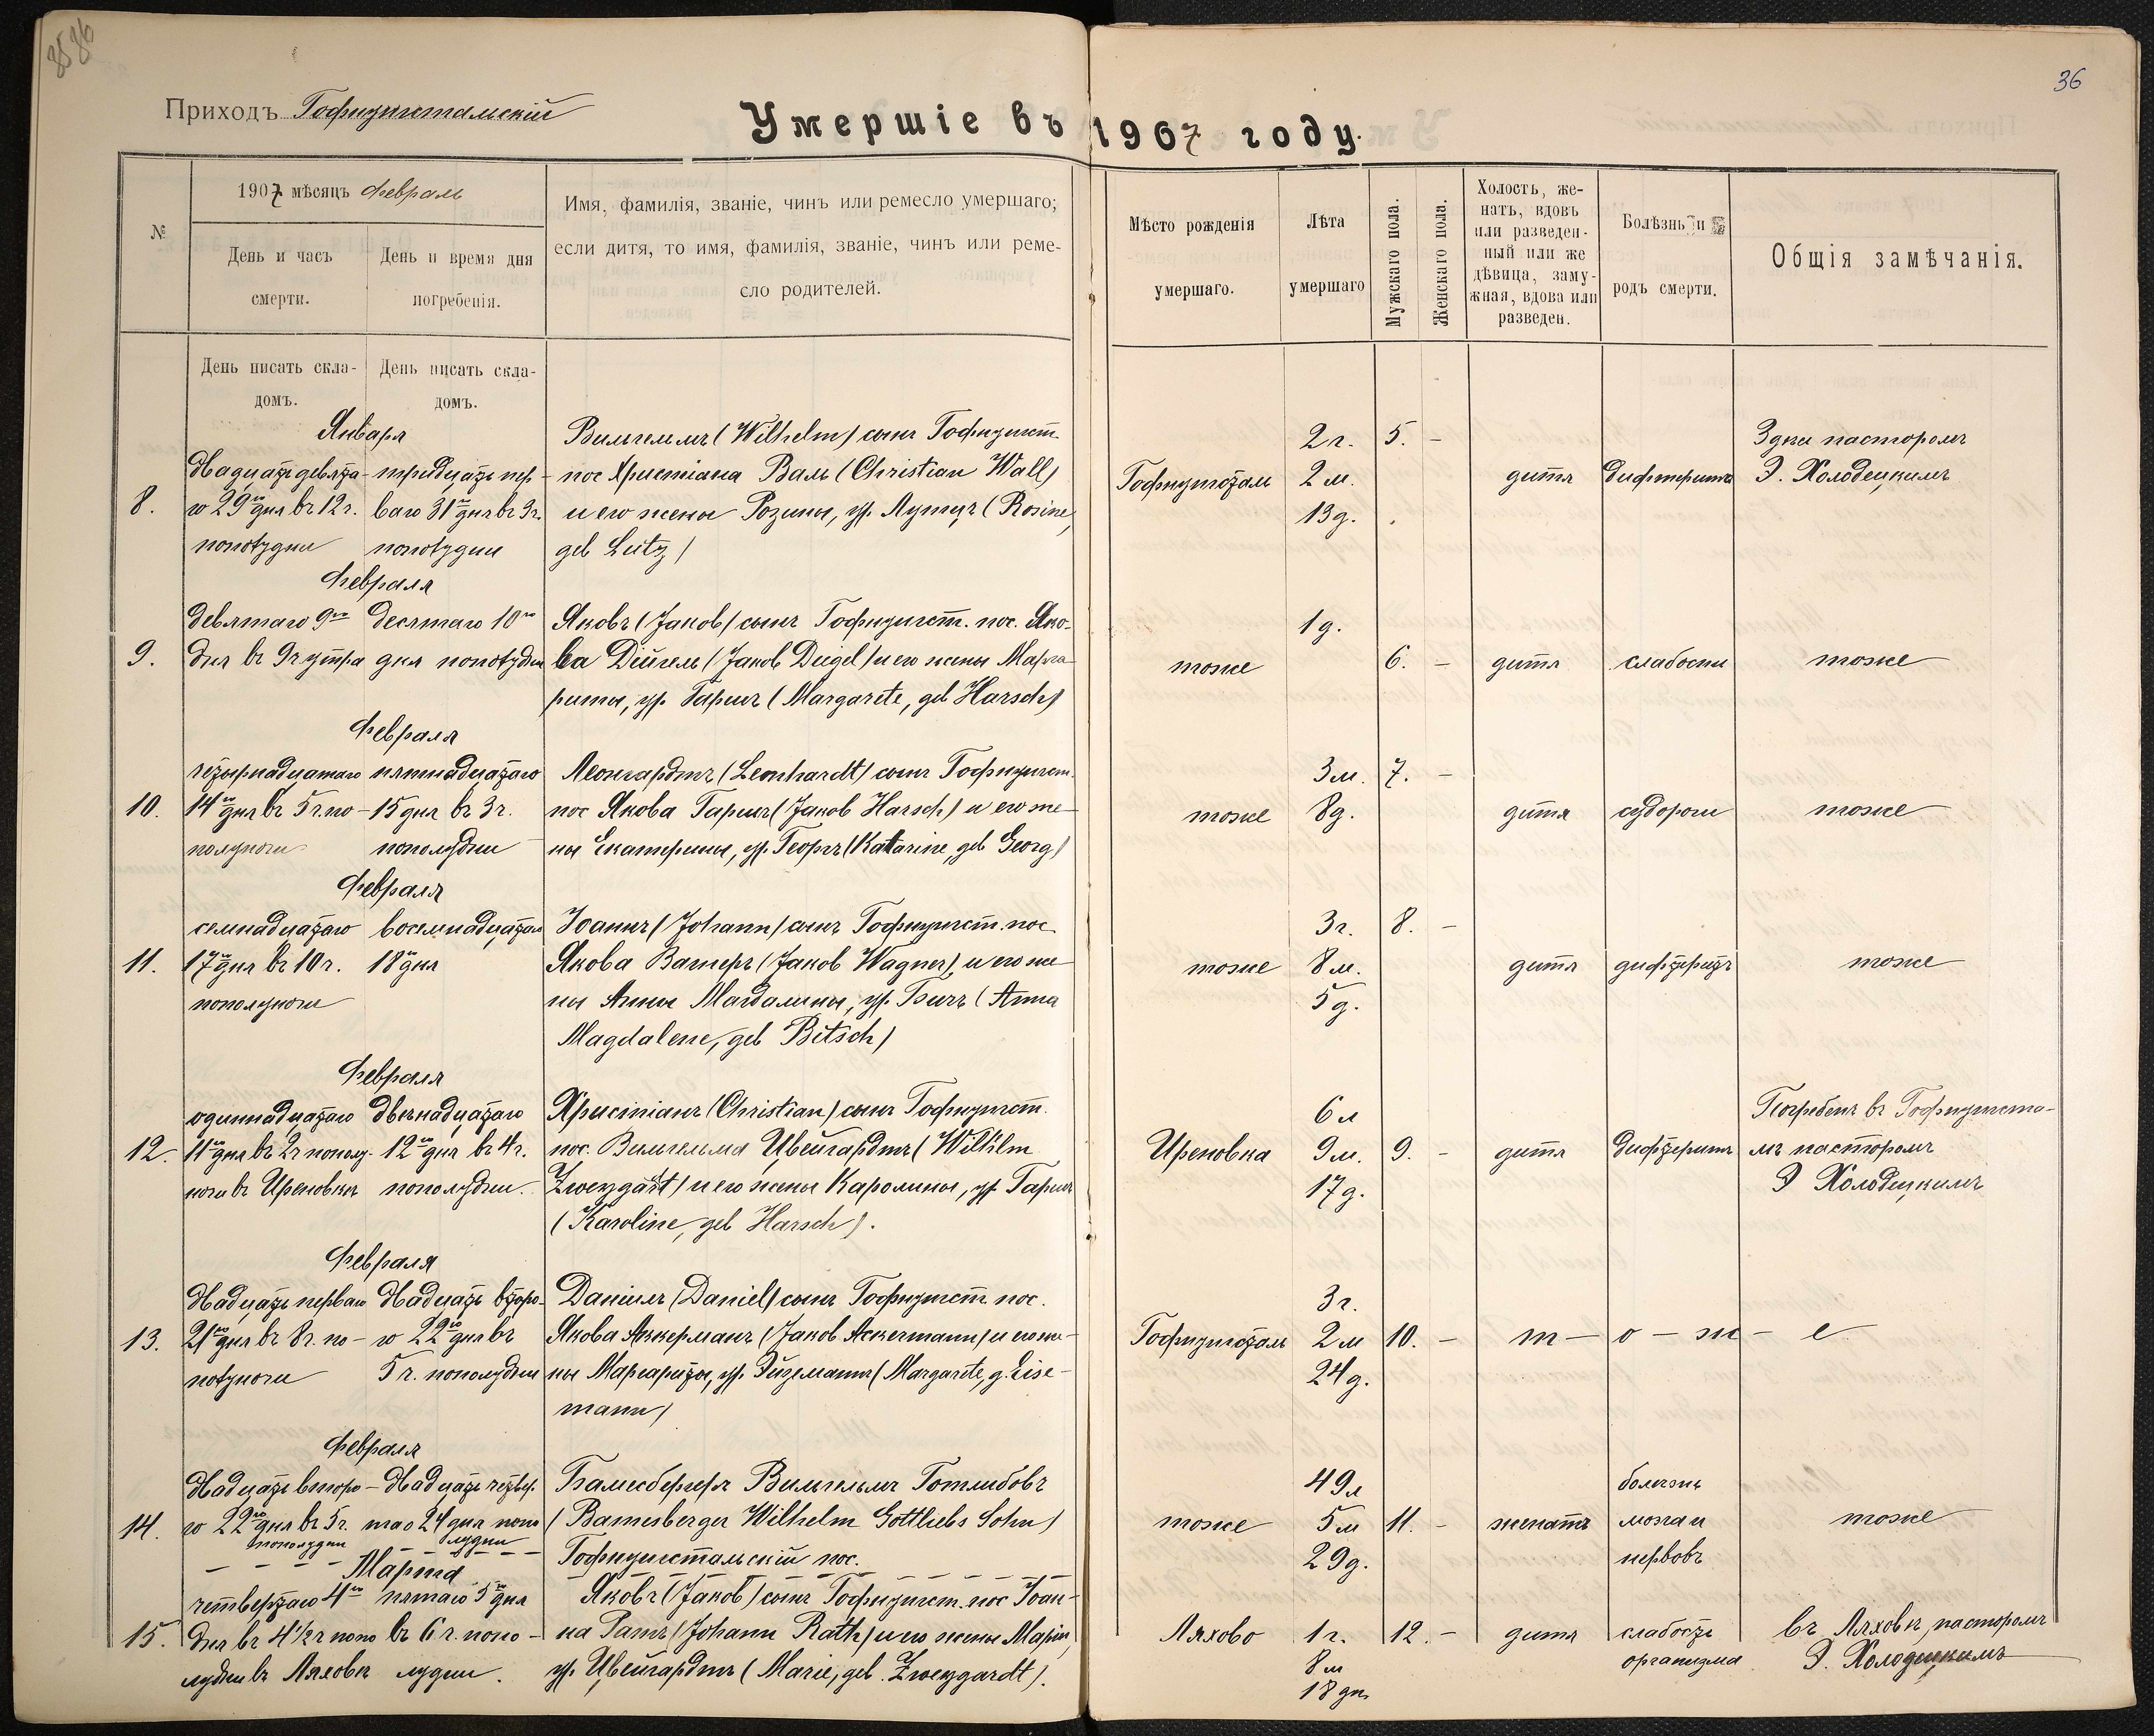 36
Приходъ Гофнунгстальскій
Умершіе въ 1907 году.
№
1907 мѣсяцъ Февраль
День и часъ смерти.
День и время дня погребенія.
Имя, фамилія, званіе, чинъ или ремесло умершаго;
если дитя, то имя, фамилія, званіе, чинъ или реме-
сло родителей.
Мѣсто рожденія умершаго.
Лѣта умершаго
Мужскаго пола.
Женскаго пола.
Холостъ, же-
натъ, вдовъ
или разведен-
ный или же
дѣвица, заму-
жная, вдова или
разведен.
Болѣзнь и
родъ смерти.
Общія замѣчанія.
День писать скла-
домъ.
День писать скла-
домъ.
Января
8.
двадцать девята-
го 29го дня въ 12 ч.
пополудни
тридцать пер-
ваго 31го дня въ 3 ч.
пополудни
Вильгельмъ (Wilhelm) сынъ Гофнунгст.
пос Христіана Валь (Christian Wall)
и его жены Розины, ур. Лутцъ (Rosine,
geb Lutz)
Гофнунгсталь
2 г.
2 м.
13 д.
5. -
дитя
дифтеритъ
Здѣсь пасторомъ
Э. Холодецкимъ
Февраля
9.
девятаго 9го
дня въ 9 ч утра
десятаго 10го
дня пополудни
Яковъ (Jakob) сынъ Гофнунгст. пос. Яко-
ва Дейгель (Jakob Deigel) и его жены Марга-
риты, ур. Гаршъ (Margarete, geb Harsch)
тоже
1 д.
6. -
дитя
слабости
тоже
Февраля
10.
четырнадцатаго
14го дня въ 5 ч. по-
полуночи
пятнадцатаго
15 дня въ 3 ч.
пополудни
Леонгардтъ (Leonhardt) сынъ Гофнунгст.
пос Якова Гаршъ (Jakob Harsch) и его же-
ны Екатерины, ур. Георгъ (Katarine, geb Georg)
тоже
3 м.
8 д.
7. -
дитя
судороги
тоже
Февраля
11.
семнадцатаго
17го дня въ 10 ч.
пополуночи
восемнадцатаго
18го дня
Іоаннъ (Johann) сынъ Гофнунгст. пос
Якова Вагнеръ (Jakob Wagner), и его же
ны Анны Магдалины, ур. Бичъ (Anna
Magdalene, geb Bitsch)
тоже
3 г.
8 м.
5 д.
8. -
дитя
дифтеритъ
тоже
Февраля
12.
одиннадцатаго
11го дня въ 2 ч пополу-
ночи въ Цреновкѣ
двѣнадцатаго
12го дня въ 4 ч.
пополудни.
Христіанъ (Christian) сынъ Гофнунгст.
пос. Вильгельма Цвейгардтъ (Wilhlm
Zweygardt) и его жены Каролины, ур. Гаршъ
(Karoline, geb Harsch).
Цреновка
6 л
9 м.
17 д.
9. -
дитя
дифтеритъ
Погребенъ въ Гофнунгста-
лѣ пасторомъ
Э Холодецкимъ
Февраля
13.
двадцать перваго
21го дня въ 8 ч. по-
полуночи
двадцать второ-
го 22го дня въ
5 ч. пополудни
Даніилъ (Daniel) сынъ Гофнунгст. пос.
Якова Аккерманъ (Jakob Ackermann) и его же-
ны Маргариты, ур. Эйземаннъ (Margarete, g. Eise-
mann)
Гофнунгсталь
3 г.
2 м
24 д.
10. -
т - о - ж - е
Февраля
14.
двадцать второ-
го 22го дня въ 5 ч.
пополудни
двадцать четвер-
таго 24 дня попо
лудни
Бамесбергеръ Вильгельмъ Готлибовъ
(Bamesberger Wilhelm Gottliebs Sohn)
Гофнунгстальскій пос.
тоже
49 л
5 м
29 д.
11. -
женатъ
болѣзнь
мозга и
нервовъ
тоже
Марта
15.
четвертаго 4го
дня въ 4½ ч попо
лудни въ Ляховѣ
пятаго 5го дня
въ 6 ч. попо-
лудни.
Яковъ (Jakob) сынъ Гофнунгст. пос Іоан-
на Ратъ (Johann Rath) и его жены Маріи,
ур. Цвейгардтъ (Marie, geb. Zweygardt).
Ляхово
1 г.
8 м
18 дн.
12. -
дитя
слабость
организма
въ Ляховѣ, пасторомъ
Э. Холодецкимъ